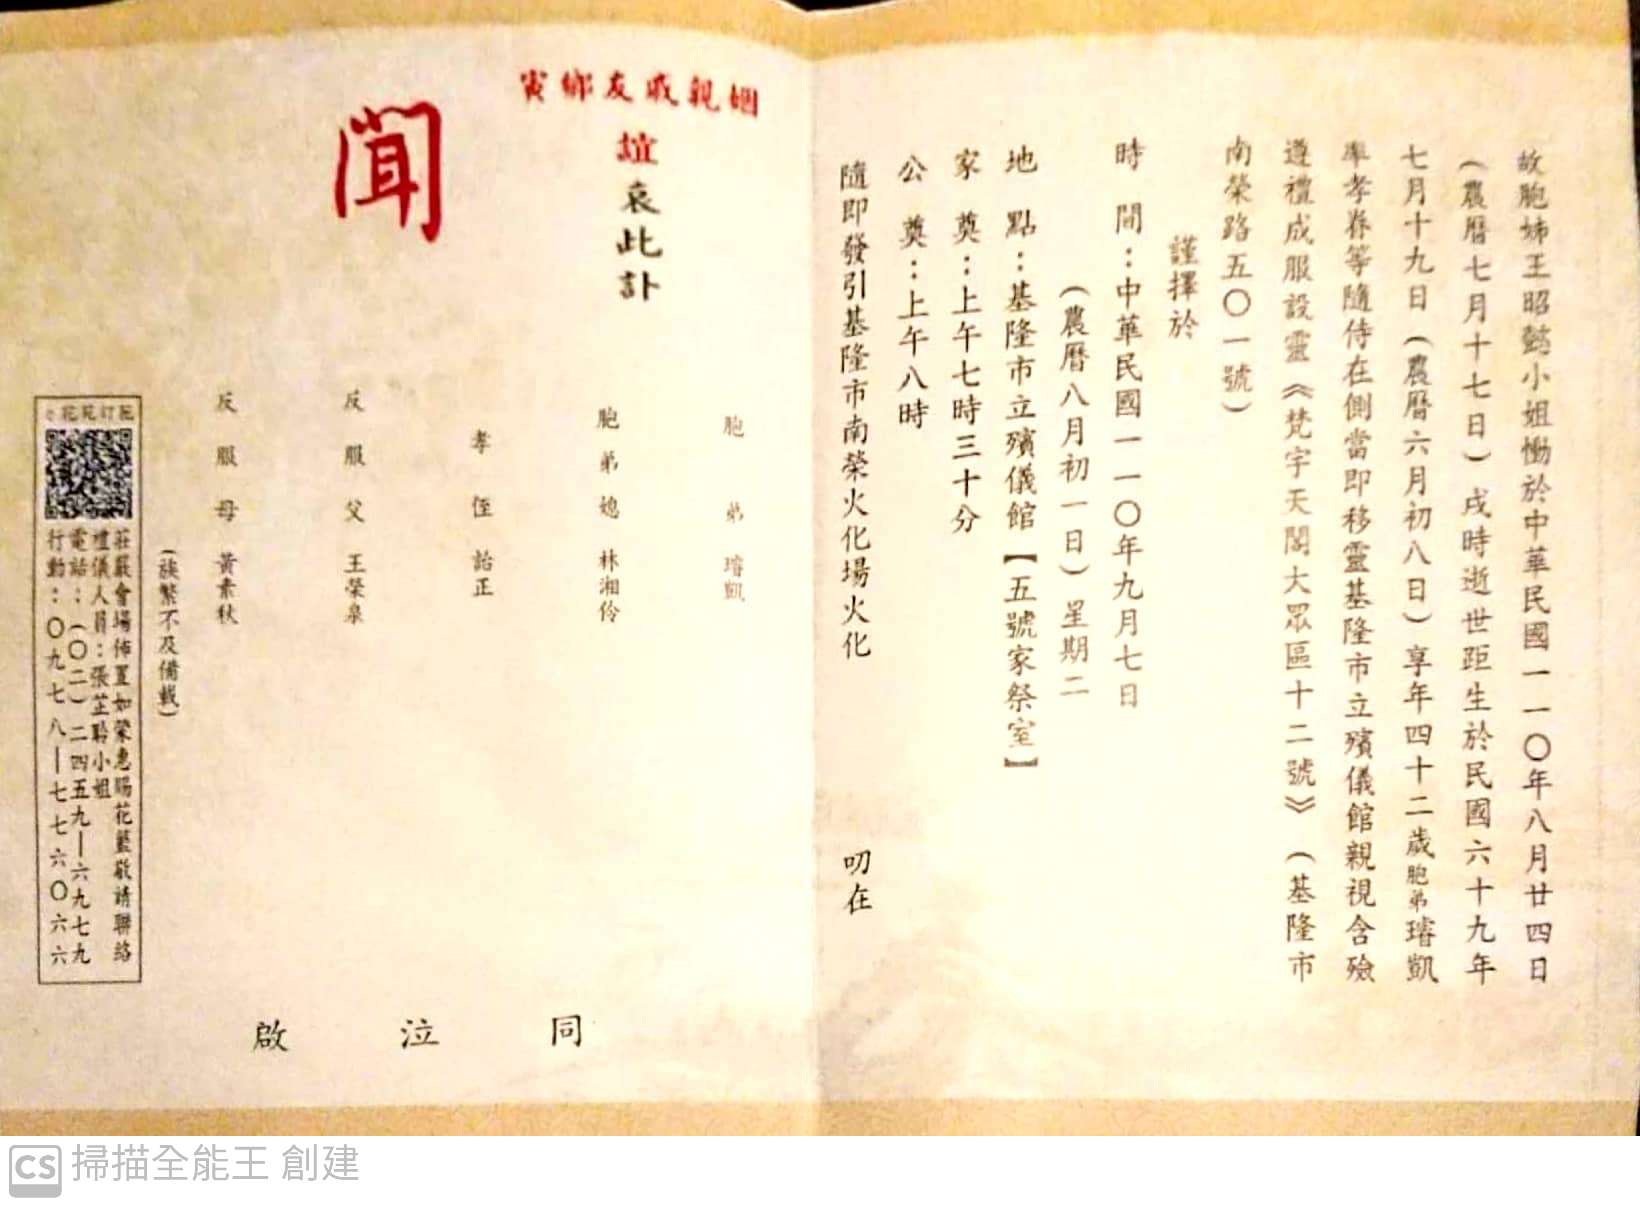 故胞姊王昭懿小姐慟於中華民國一一〇年八月廿四日
(農曆七月十七日)戌時逝世距生於民國六十九年
七月十九日(農曆六月初八日)享年四十二歲胞弟璿凱
率孝眷等隨侍在側當即移靈基隆市立殯儀館親視含殮
遵禮成服設靈《梵宇天閣大眾區十二號》(基隆市
南榮路五〇一號)
謹擇於
時 間:中華民國一一〇年九月七日
(農曆八月初一日)星期二
地 點:基隆市立殯儀館【五號家祭室】
家 奠:上午七時三十分
公 奠:上午八時
隨即發引基隆市南榮火化場火化 叨在
姻親戚友鄉寅
誼哀此訃
聞
胞弟 璿凱
胞弟媳 林湘伶
孝侄 詒正
反服父 王榮泉
反服母 黃素秋
(族繁不及備載)
同泣啟
莊嚴會場佈置如榮惠賜花籃敬請聯絡
禮儀人員:張芷聆小姐
電話:(〇二)二四五九—六九七九
行動:〇九七八—七七六〇六六
CS 掃描全能王 創建